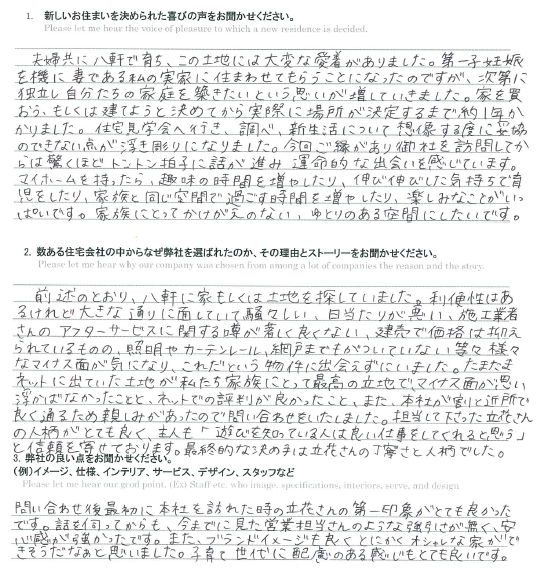 1. 新しいお住まいを決められた喜びの声をお聞かせください。
Please let me hear the voice of pleasure to which a new residence is decided.
夫婦共に八軒で育ち、この土地には大変な愛着がありました。第一子妊娠
を機に妻である私の実家に住まわせてもらうことになったのですが、次第に
独立し自分たちの家庭を築きたいという思いが増していきました。家を買
おう、もしくは建てようと決めてから実際に場所が決定するまで約1年か
かりました。住宅見学会へ行き、調べ、新生活について想像する度に妥協
のできない点が浮き彫りになりました。今回ご縁があり御社を訪問してか
らは驚くほどトントン拍子に話が進み運命的な出会いを感じています。
マイホームを持ったら、趣味の時間を増やしたり、伸び伸びした気持ちで育
児をしたり、家族と同じ空間で過ごす時間を増やしたり、楽しみなことがいっ
ぱいです。家族にとってかけがえのない、ゆとりのある空間にしたいです。
2. 数ある住宅会社の中からなぜ弊社を選ばれたのか、その理由とストーリーをお聞かせください。
Please let me hear why our company was chosen from among a lot of companies the reason and the story.
前述のとおり、八軒に家もしくは土地を探していました。利便性はあ
るけれど大きな通りに面していて騒々しい、日当たりが悪い、施工業者
さんのアフターサービスに関する噂が著しく良くない、建売で価格は抑え
られているものの、照明やカーテンレール、網戸までもがついていない等々様々
なマイナス面が気になり、これだという物件に出会えずにいました。たまたま
ネットに出ていた土地が私たち家族にとって最高の立地で、マイナス面が思い
浮かばなかったことと、ネットでの評判が良かったこと、また、本社が割と近所で
良く通るため親しみがあったので問い合わせをいたしました。担当して下さった立花さん
の人柄がとても良く、主人も「遊びを知っている人は良い仕事をしてくれると思う」
と信頼を寄せております。最終的な決め手は立花さんの丁寧さと人柄でした。
3. 弊社の良い点をお聞かせください。
(例)イメージ、仕様、インテリア、サービス、デザイン、スタッフなど
Please let me hear our good point. (Ex) Staff etc. who image, specifications, interiors, serve, and design
問い合わせ後最初に本社を訪れた時の立花さんの第一印象がとても良かった
です。話を伺ってからも、今までに見た営業担当さんのような強引さが無く、安
心感が強かったです。また、ブランドイメージも良くとにかくオシャレな家がで
きそうだなぁと思いました。子育て世代に配慮のある感じもとても良いです。